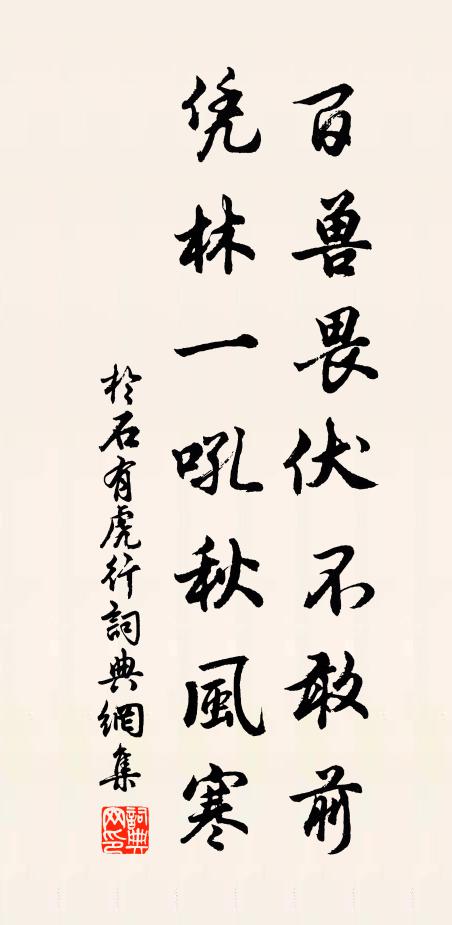 百兽畏伏不敢前
凭林一吼秋風寒
於石有虎行詞典網集
詞典網印